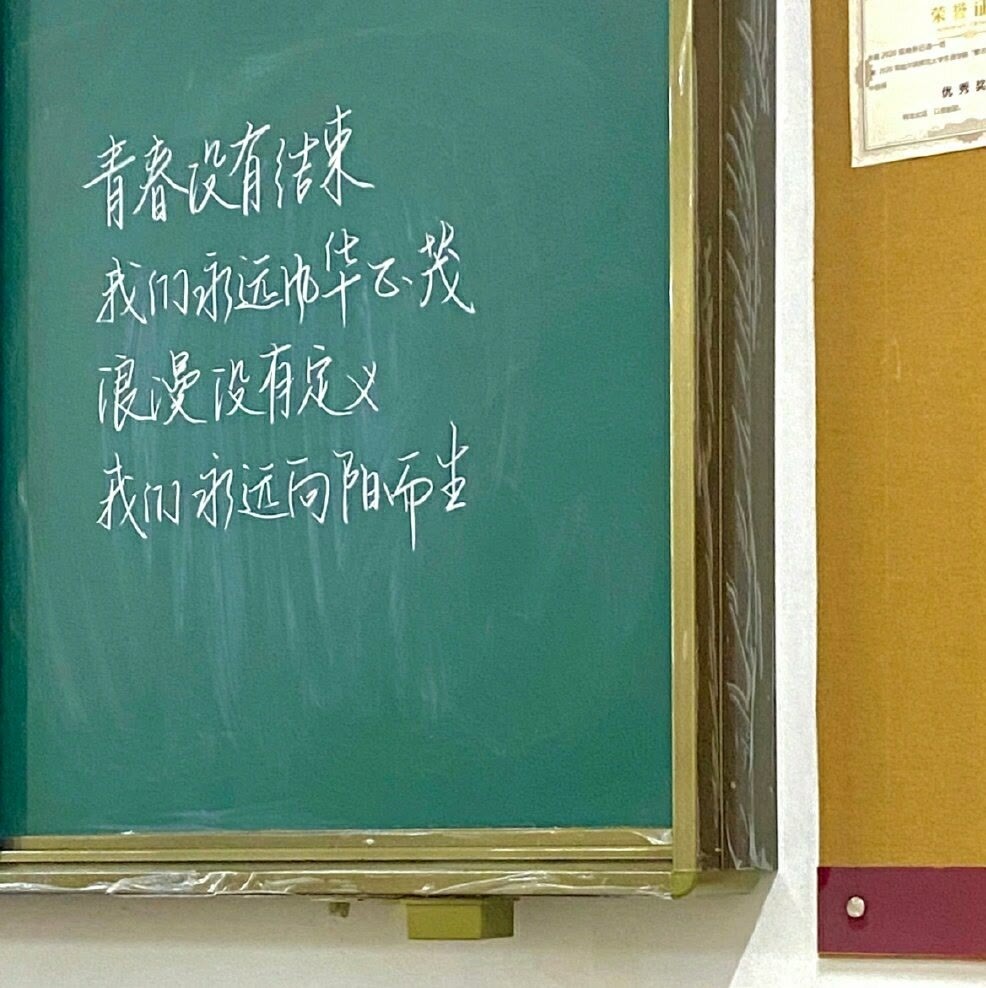 青春没有结束
我们永远风华正茂
浪漫没有定义
我们永远向阳而生
荣誉证
优秀奖